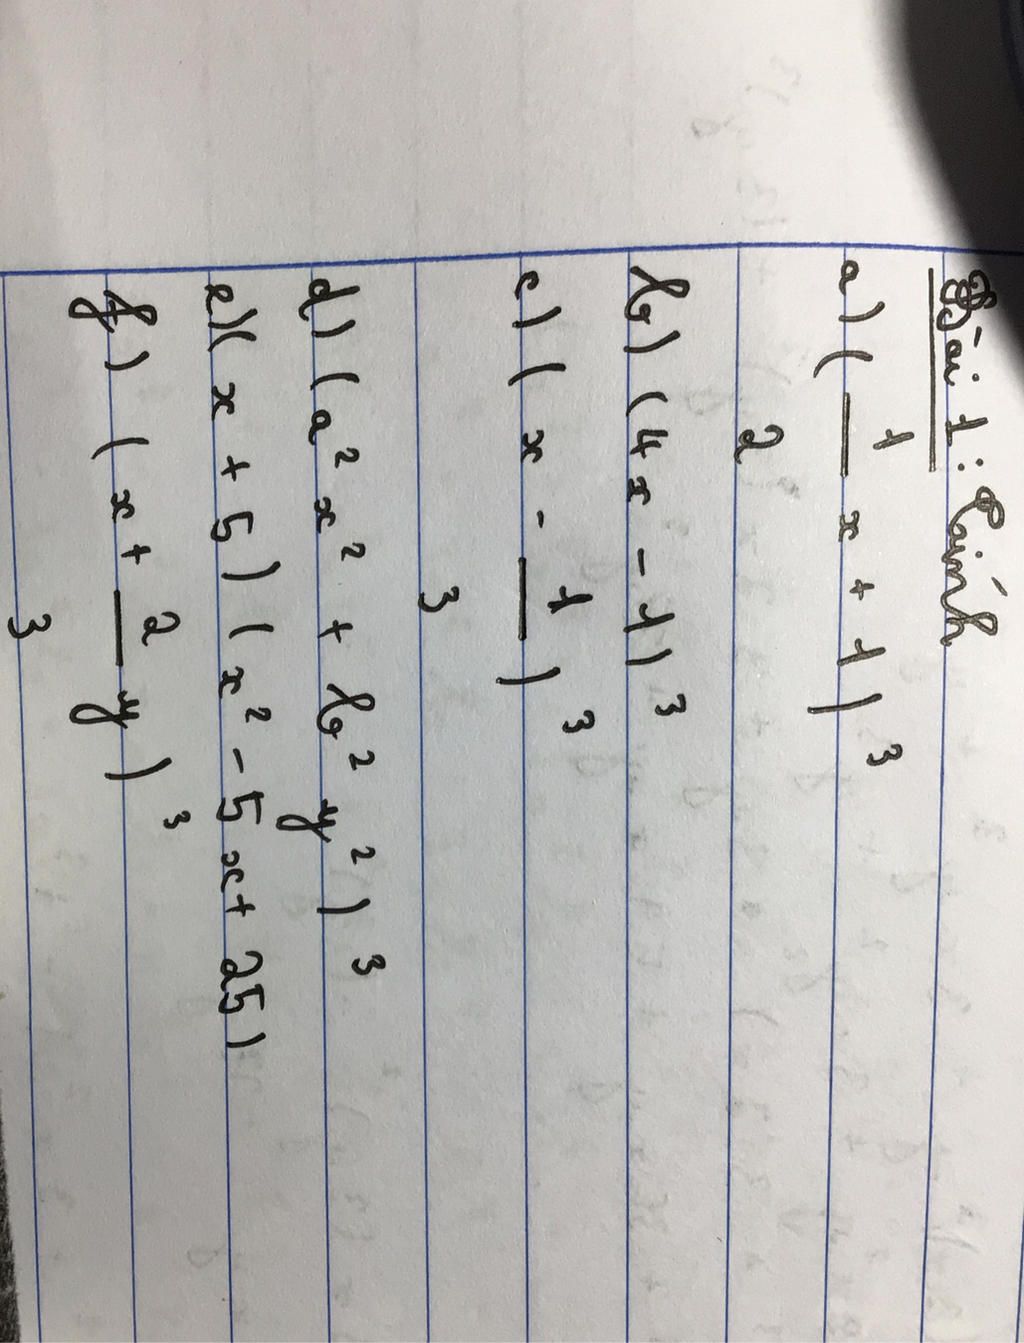 Bài 1: Tính
a) (1/2 x + 1)³
b) (4x - 1)³
c) (x - 1/3)³
d) (a² x² + b² y²)³
e) (x + 5) (x² - 5x + 25)
f) (x + 2/3 y)³